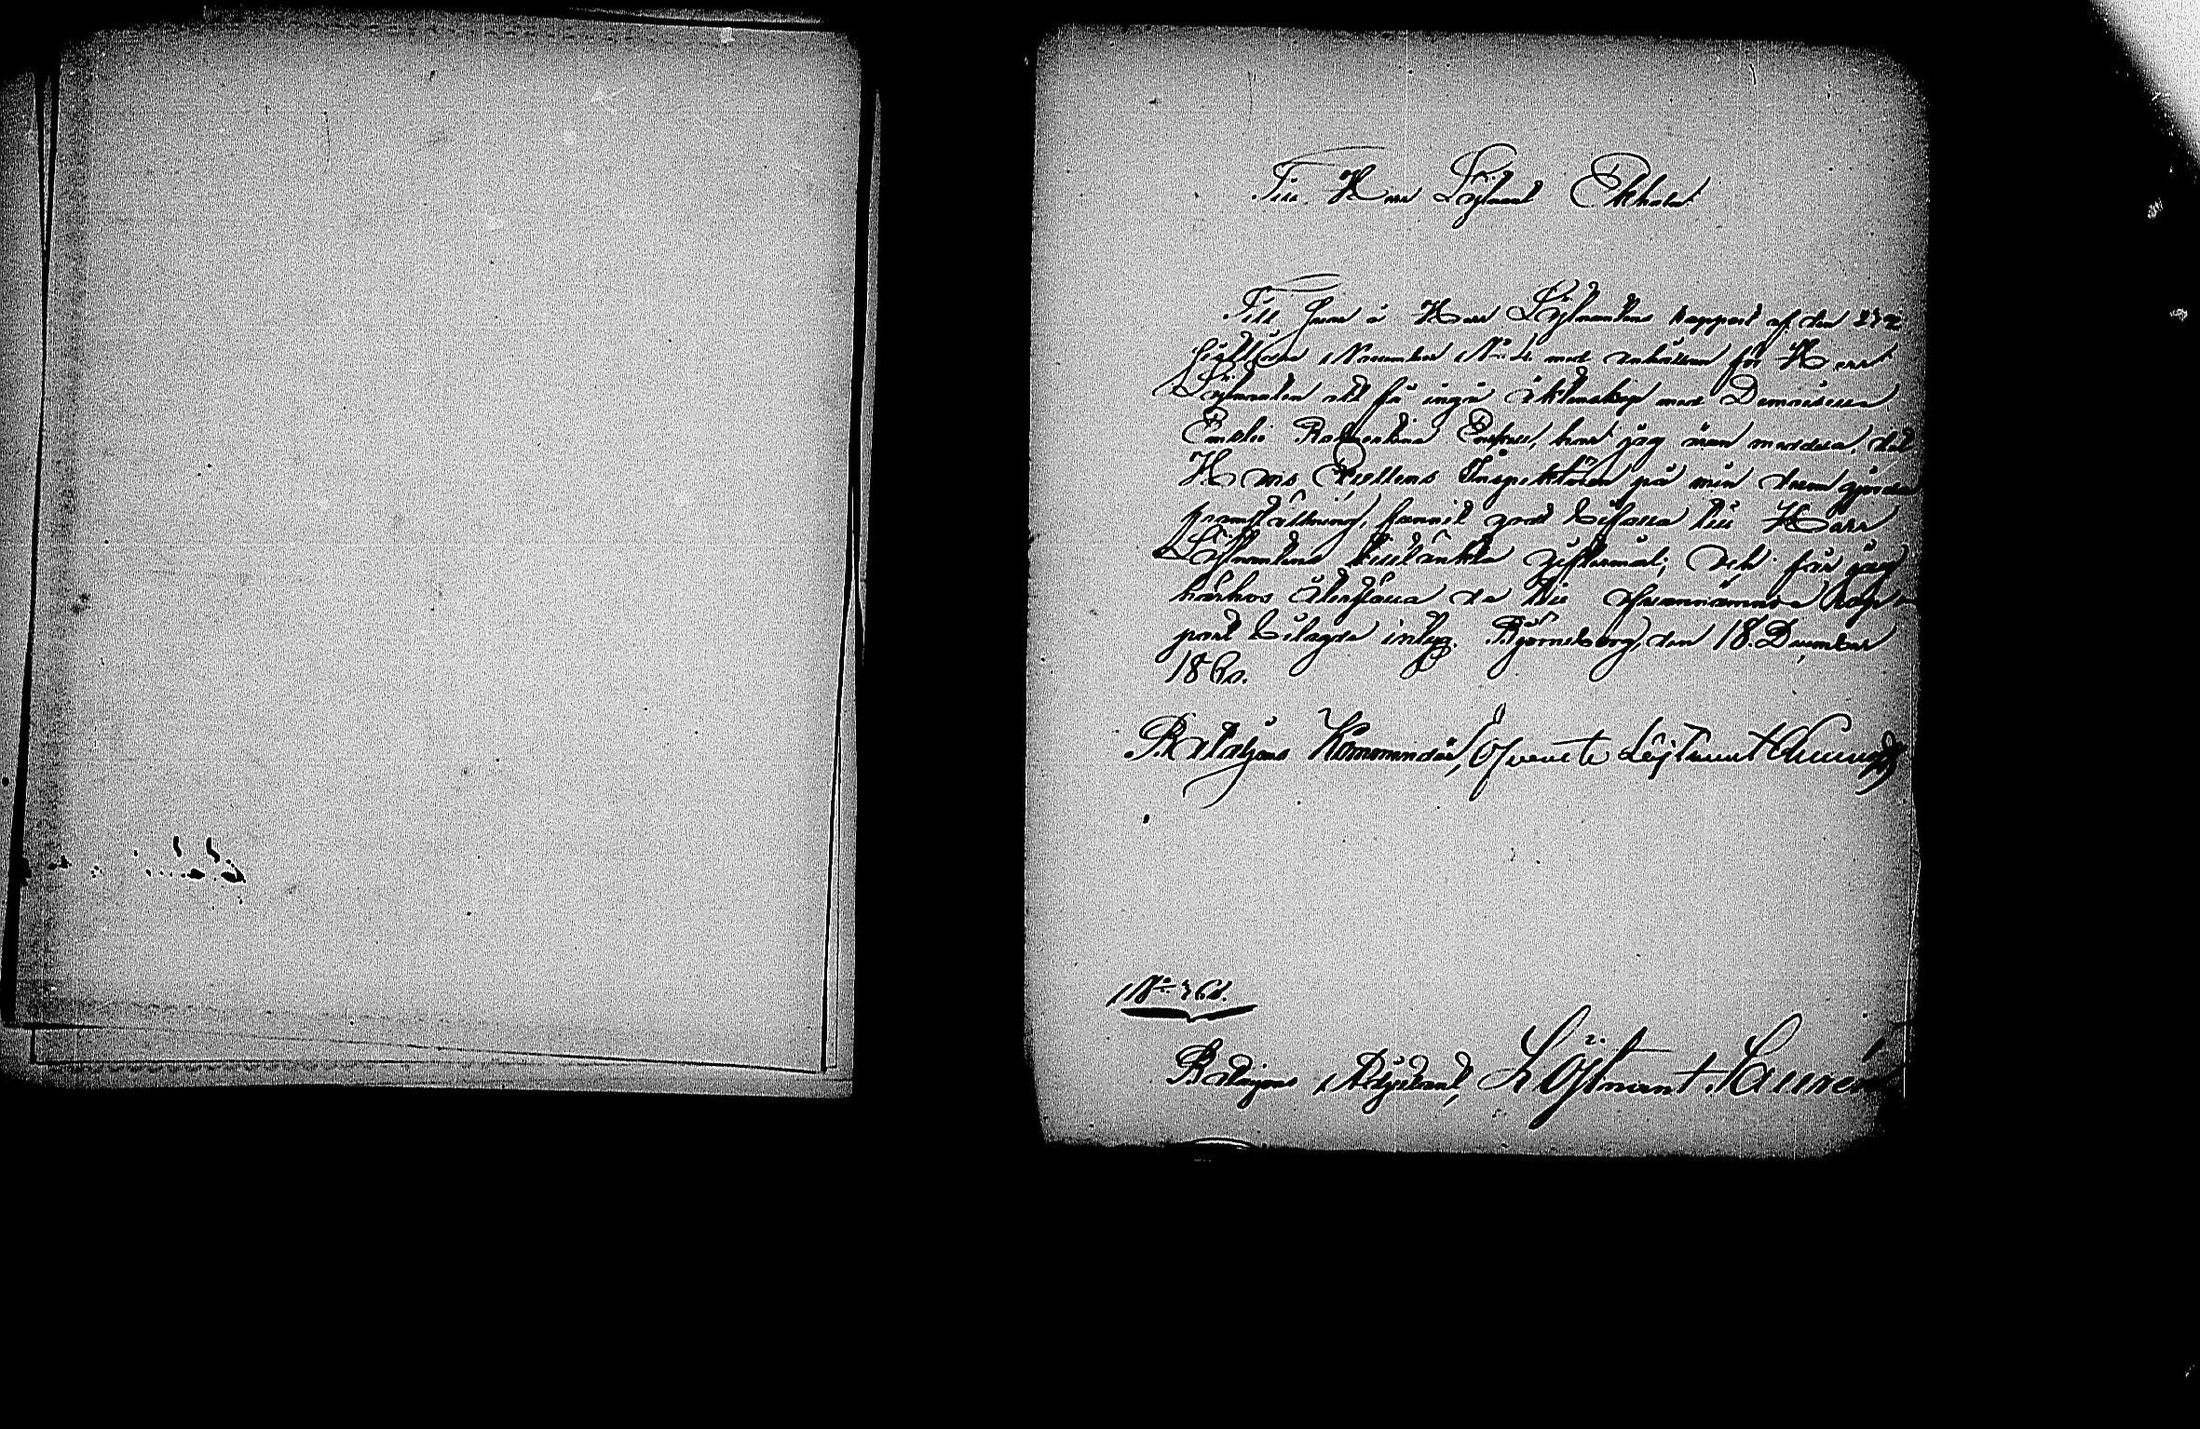 Till Herr Löjtnant Ekholm
Till svar å Herr Löjtnantens rapport af den 27
sistledne November No 4 med anhållan för Herr
Löjtnanten att få ingå äktenskap med Demoisellen
Emelie har jag äran meddela, det
Herr Inspektören på min derom gjorda
framställning, funnit godt bifalla till Herr
Löjtnantens tilltänkta giftermål; och får jag
härhos återställa de till ofvannämnde Rap-
port bilagde intyg. Björneborg, den 18. December
1860.
Bataljons Kommendör, Öfverste Löjtnant
No 361.
Bataljons Adjutant, Löjtnant Laurén